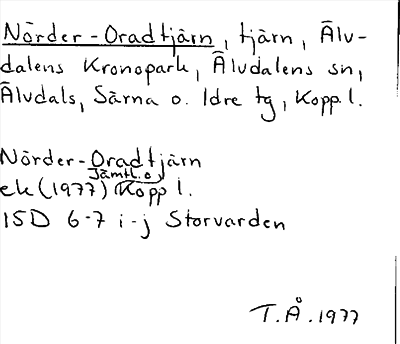 Nörder-Oradtjärn, tjärn, Älv-
dalens Kronopark, Älvdalens sn,
Älvdals, Särna o. Idre tg, Kopp. l.
Nörder-Oradtjärn
Jämtl. o.
ek (1977) Kopp l.
15D 6-7 i-j Storvarden
T.Å. 1977